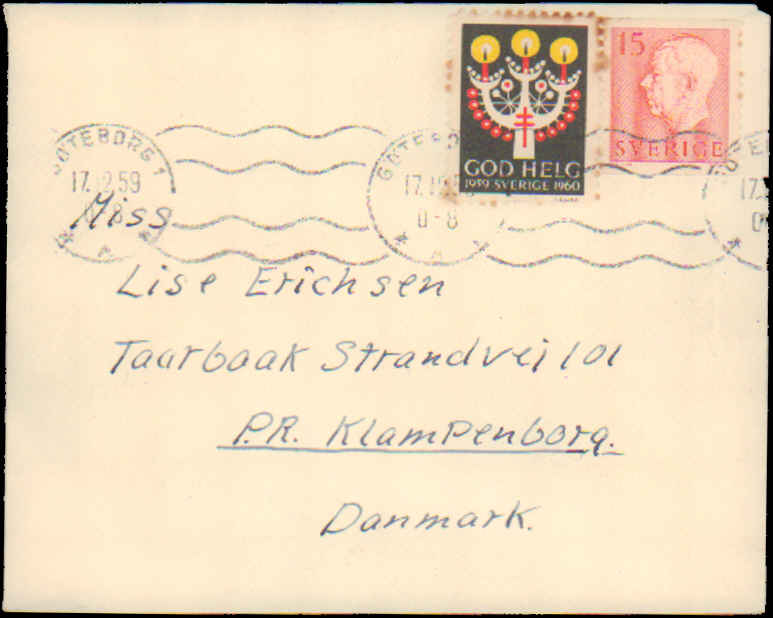 15
SVERIGE
GOD HELG
1959 SVERIGE 1960
GÖTEBORG 1
17.12.59
0-8
GÖTEBO
17.12.5
0-8
17.
0
Miss
Lise Erichsen
Taarbaak Strandvej 101
P.R. Klampenborg.
Danmark.